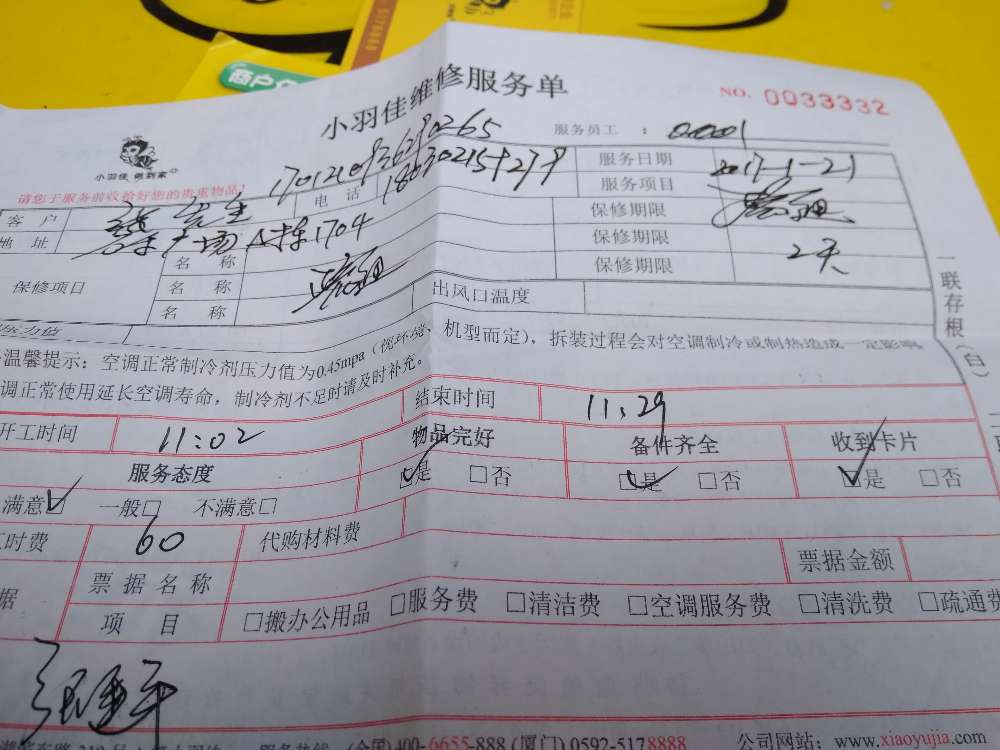 5178888
商户
小羽佳维修服务单
NO. 0033332
小羽佳 做到家
服务员工 : 0.0001
请您于服务前收拾好您的贵重物品!
客 户 先生 电 话 服务日期 2017-1-21
地 址 广场 1704 服务项目
保修期限
保修期限 2天
保修期限
保修项目 名 称
名 称
名 称
压力值 出风口温度
温馨提示: 空调正常制冷剂压力值为0.45mpa (视环境、机型而定), 拆装过程会对空调制冷或制热造成一定影响
调正常使用延长空调寿命, 制冷剂不足时请及时补充。
一联存根(白)
开工时间 11:02 结束时间 11:29
服务态度 物品完好 备件齐全 收到卡片
满意☑ 一般□ 不满意□ ☑是 □否 ☑是 □否 ☑是 □否
时费 60 代购材料费
据 票据名称 票据金额
项 目 □搬办公用品 □服务费 □清洁费 □空调服务费 □清洗费 □疏通费
(全国)400-6655-888 (厦门) 0592-5178888 公司网站: www.xiaoyujia.com